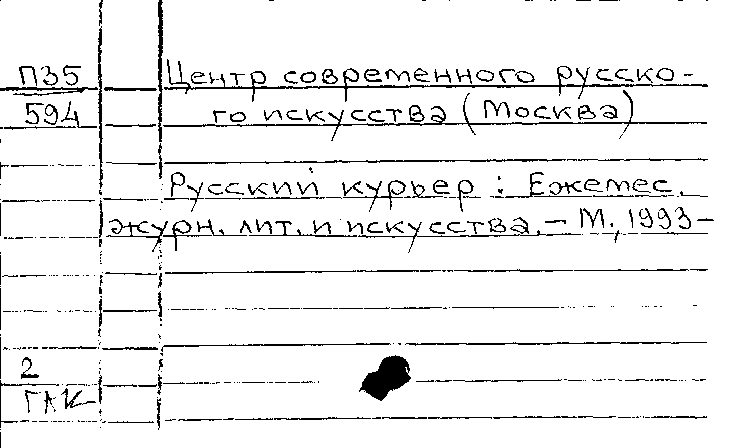 П35 Центр современного русско-
594 го искусства (Москва)
Русский курьер : Ежемес.
журн. лит. и искусства. – М., 1993–
2
ГАК